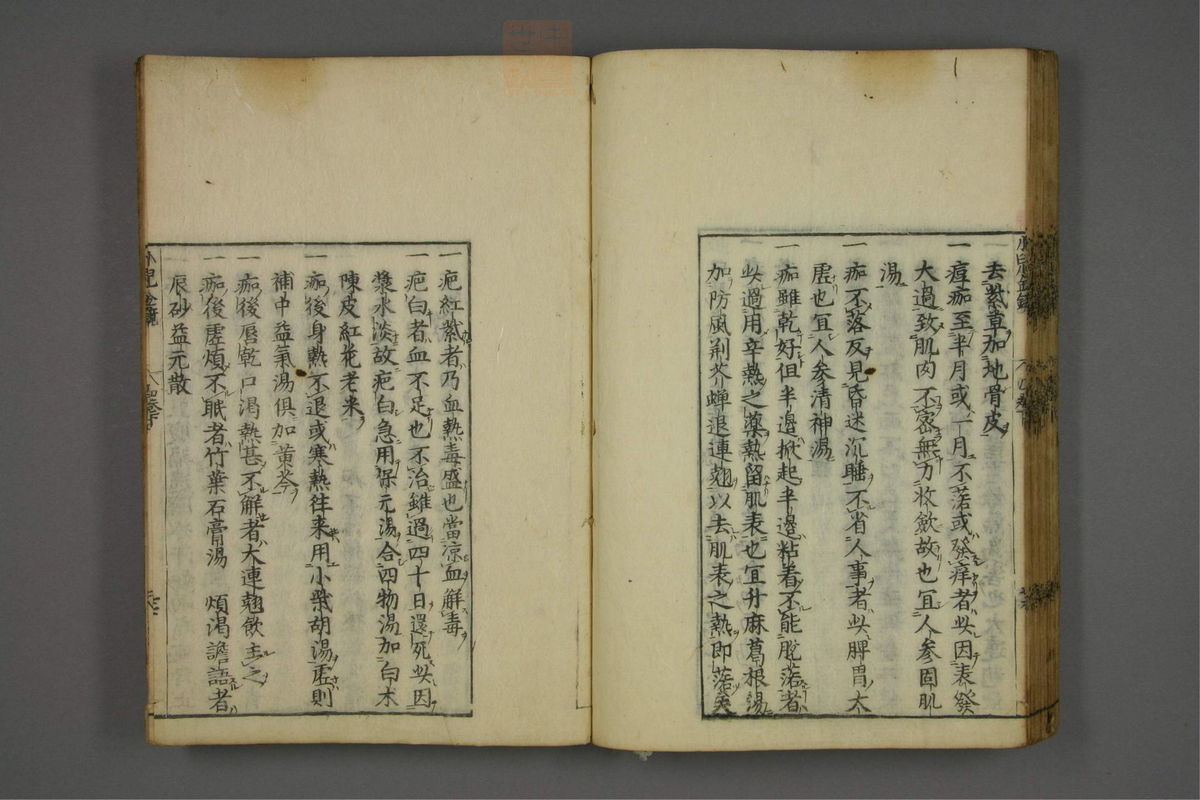 去紫草加地骨皮
一痘痂至半月或一月不落或發痒者此因表發
大過致肌肉不密無力收斂故也宜人參固肌
湯
一痂不落反見昏迷沉睡不省人事者此脾胃大
虛也宜人參清神湯
一痂雖乾好但半邊掀起半邊粘着不能脫落者
此過用辛熱之藥熱留肌表也宜升麻葛根湯
加防風荊芥蟬退連翹以去肌表之熱即落矣
一疤紅紫者乃血熱毒盛也當涼血解毒
一疤白者血不足也不治雖過四十日還死此因
漿水淡故疤白急用保元湯合四物湯加白朮
陳皮紅花老米
一痂後身熱不退或寒熱往来用小柴胡湯虛則
補中益氣湯俱加黄芩
一痂後唇乾口渴熱甚不解者大連翹飲主之
一痂後虛煩不眠者竹葉石膏湯　煩渴譫語者
辰砂益元散
小兒